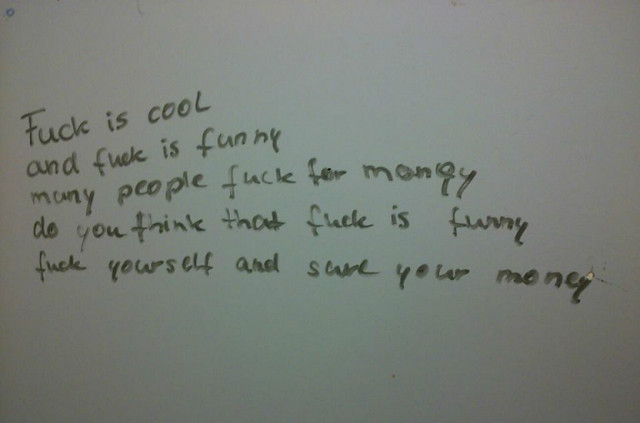 Fuck is cool
and fuck is funny
many people fuck for money
do you think that fuck is funny
fuck yourself and save your money